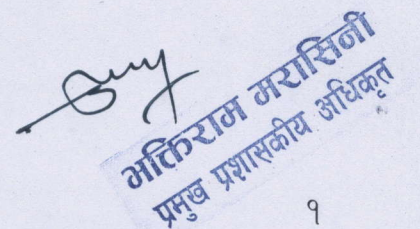 भक्तिराम मरासिनी
प्रमुख प्रशासकीय अधिकृत
१